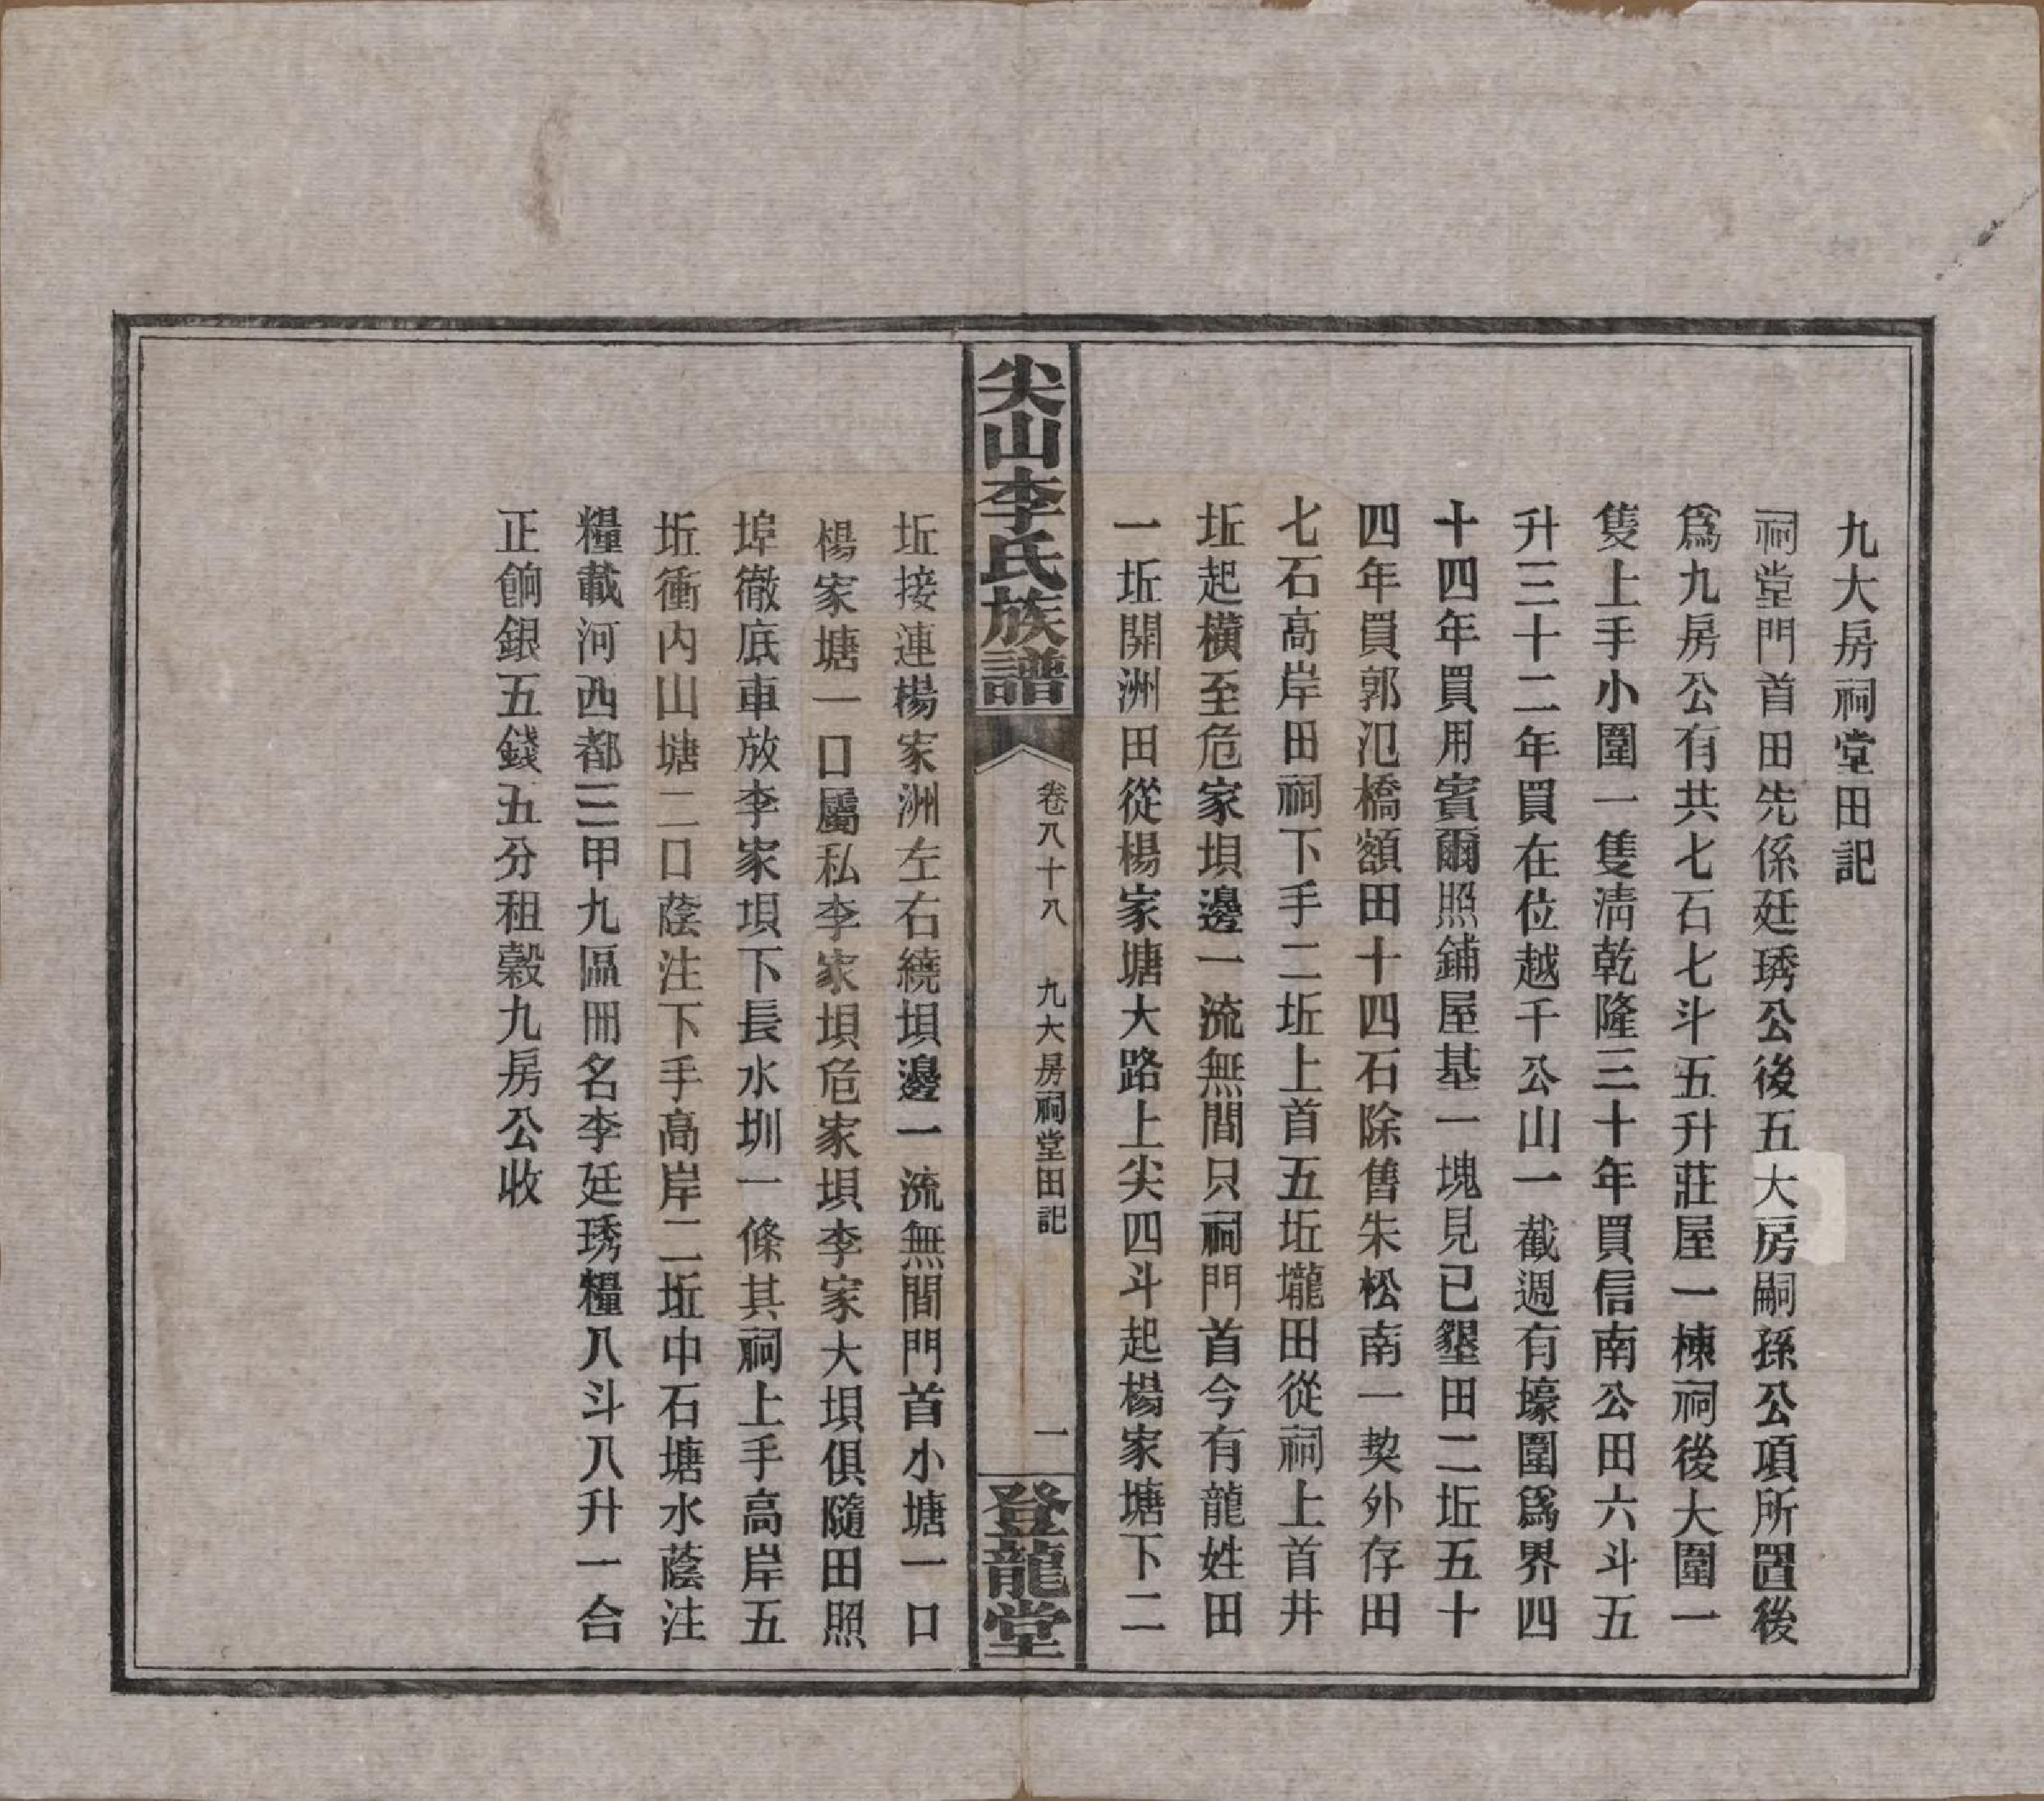 九大房祠堂田記
祠堂門首田先係廷琇公後五大房嗣孫公項所置後
爲九房公有共七石七斗五升莊屋一棟祠後大圍一
隻上手小圍一隻淸乾隆三十年買信南公田六斗五
升三十二年買在位越千公山一截週有壕圍爲界四
十四年買用賓爾照鋪屋基一塊見已墾田二坵五十
四年買郭氾橋額田十四石除售朱松南一契外存田
七石高岸田祠下手二坵上首五坵壠田從祠上首井
坵起橫至危家垻邊一流無間只祠門首今有龍姓田
一坵開洲田從楊家塘大路上尖四斗起楊家塘下二
尖山李氏族譜
卷八十八
九大房祠堂田記
一
登龍堂
坵接連楊家洲左右繞垻邊一流無間門首小塘一口
楊家塘一口屬私李家垻危家垻李家大垻俱隨田照
埠徹底車放李家垻下長水圳一條其祠上手高岸五
坵衝内山塘二口蔭注下手高岸二坵中石塘水蔭注
糧載河西都三甲九區冊名李廷琇糧八斗八升一合
正餉銀五錢五分租穀九房公收